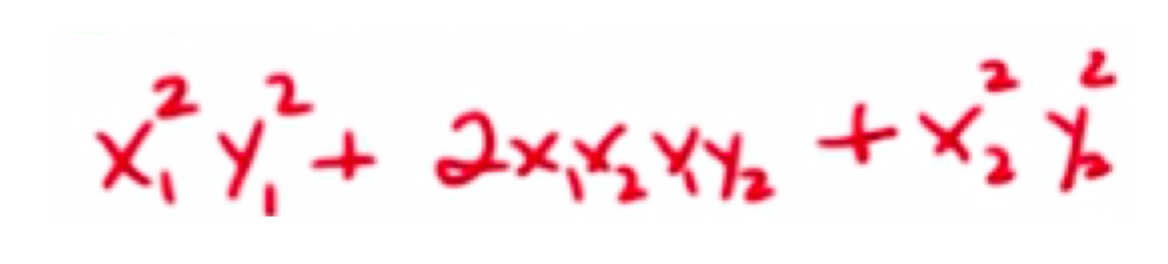 x₁² y₁² + 2x₁x₂ y₁y₂ + x₂² y₂²